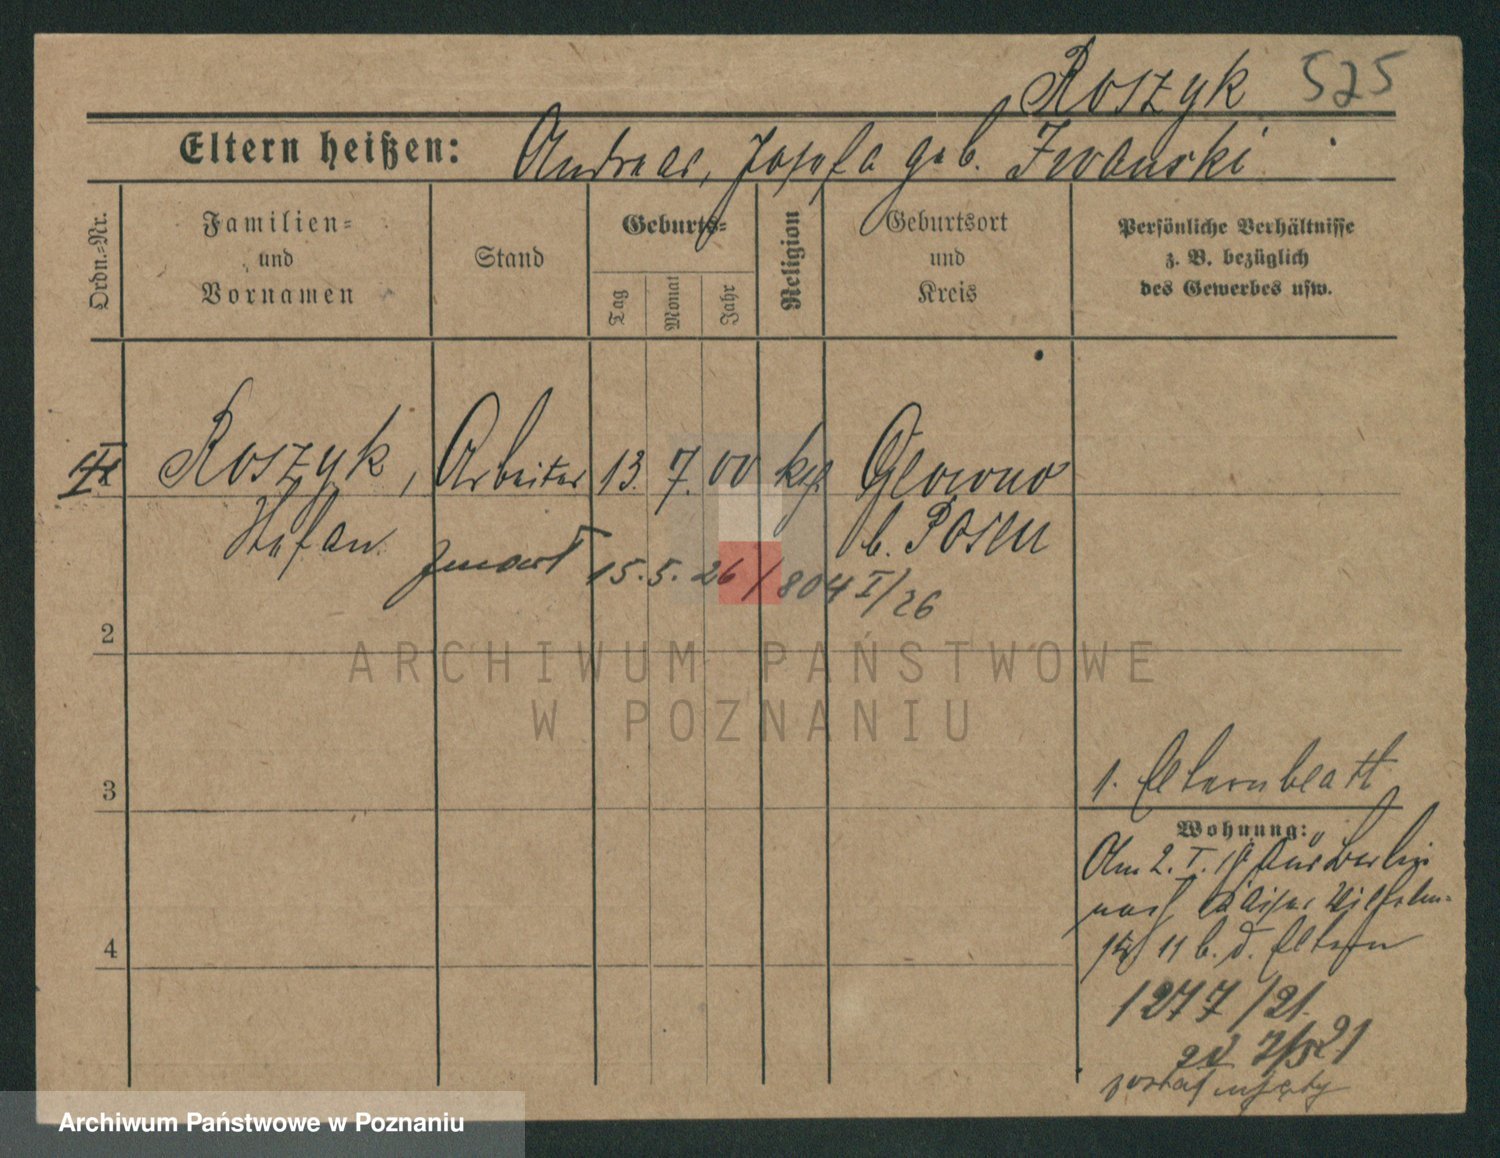 Roszyk 525
Eltern heißen: Andreas, Josefa geb. Iwanski
Ordn.-Nr.
Familien- und Vornamen
Stand
Geburts-
Tag
Monat
Jahr
Religion
Geburtsort und Kreis
Persönliche Verhältnisse z. B. bezüglich des Gewerbes usw.
Roszyk, Arbeiter 13. 7. 00 kth Glowno
Stefan b. Posen
zmarł 15. 5. 26 / 804 I/26
2
ARCHIWUM PAŃSTWOWE
W POZNANIU
3
1. Elternblatt
Wohnung:
Am 2. I. 19 aus Berlin
nach Kaiser Wilhelm-
11 b. d. Eltern
4
1277/21
został wzięty
Archiwum Państwowe w Poznaniu